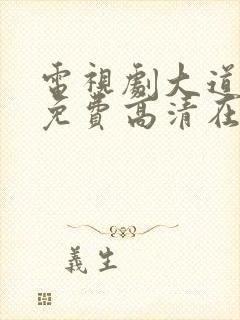 電視劇大道
免費高清在
義生